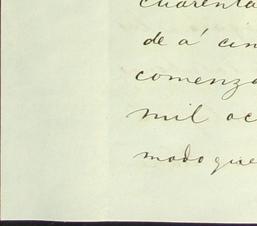 cuarenta
de á cin
comenza
mil oc
modo que